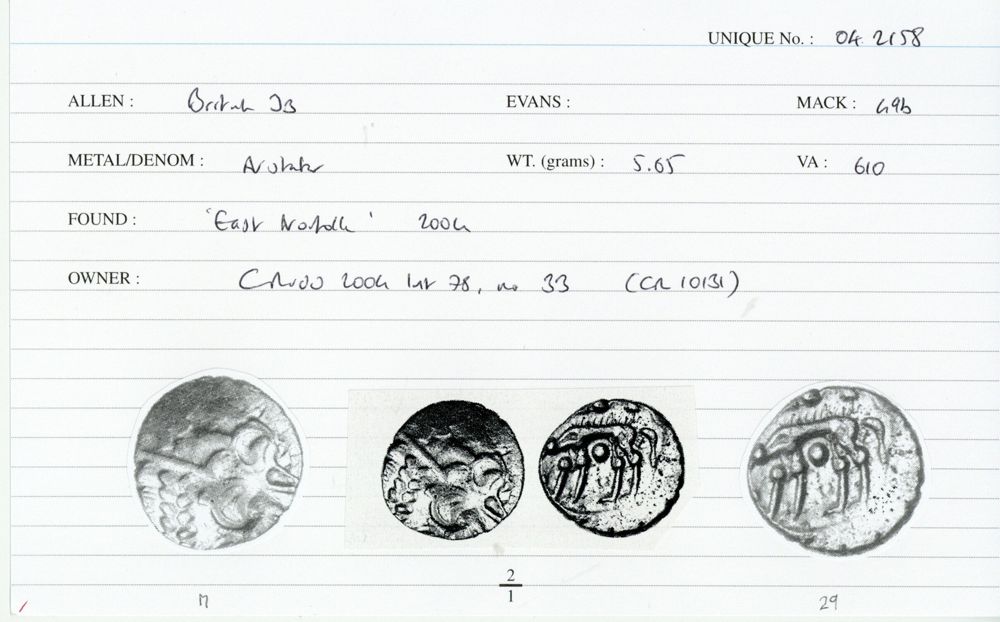 UNIQUE No. : 04.2158
ALLEN : British JB EVANS : MACK : 49b
METAL/DENOM : AV stater WT. (grams) : 5.65 VA : 610
FOUND : 'East Norfolk' 2004
OWNER : CR 2004 list 78, no 33 (CR 10131)
2
1
29